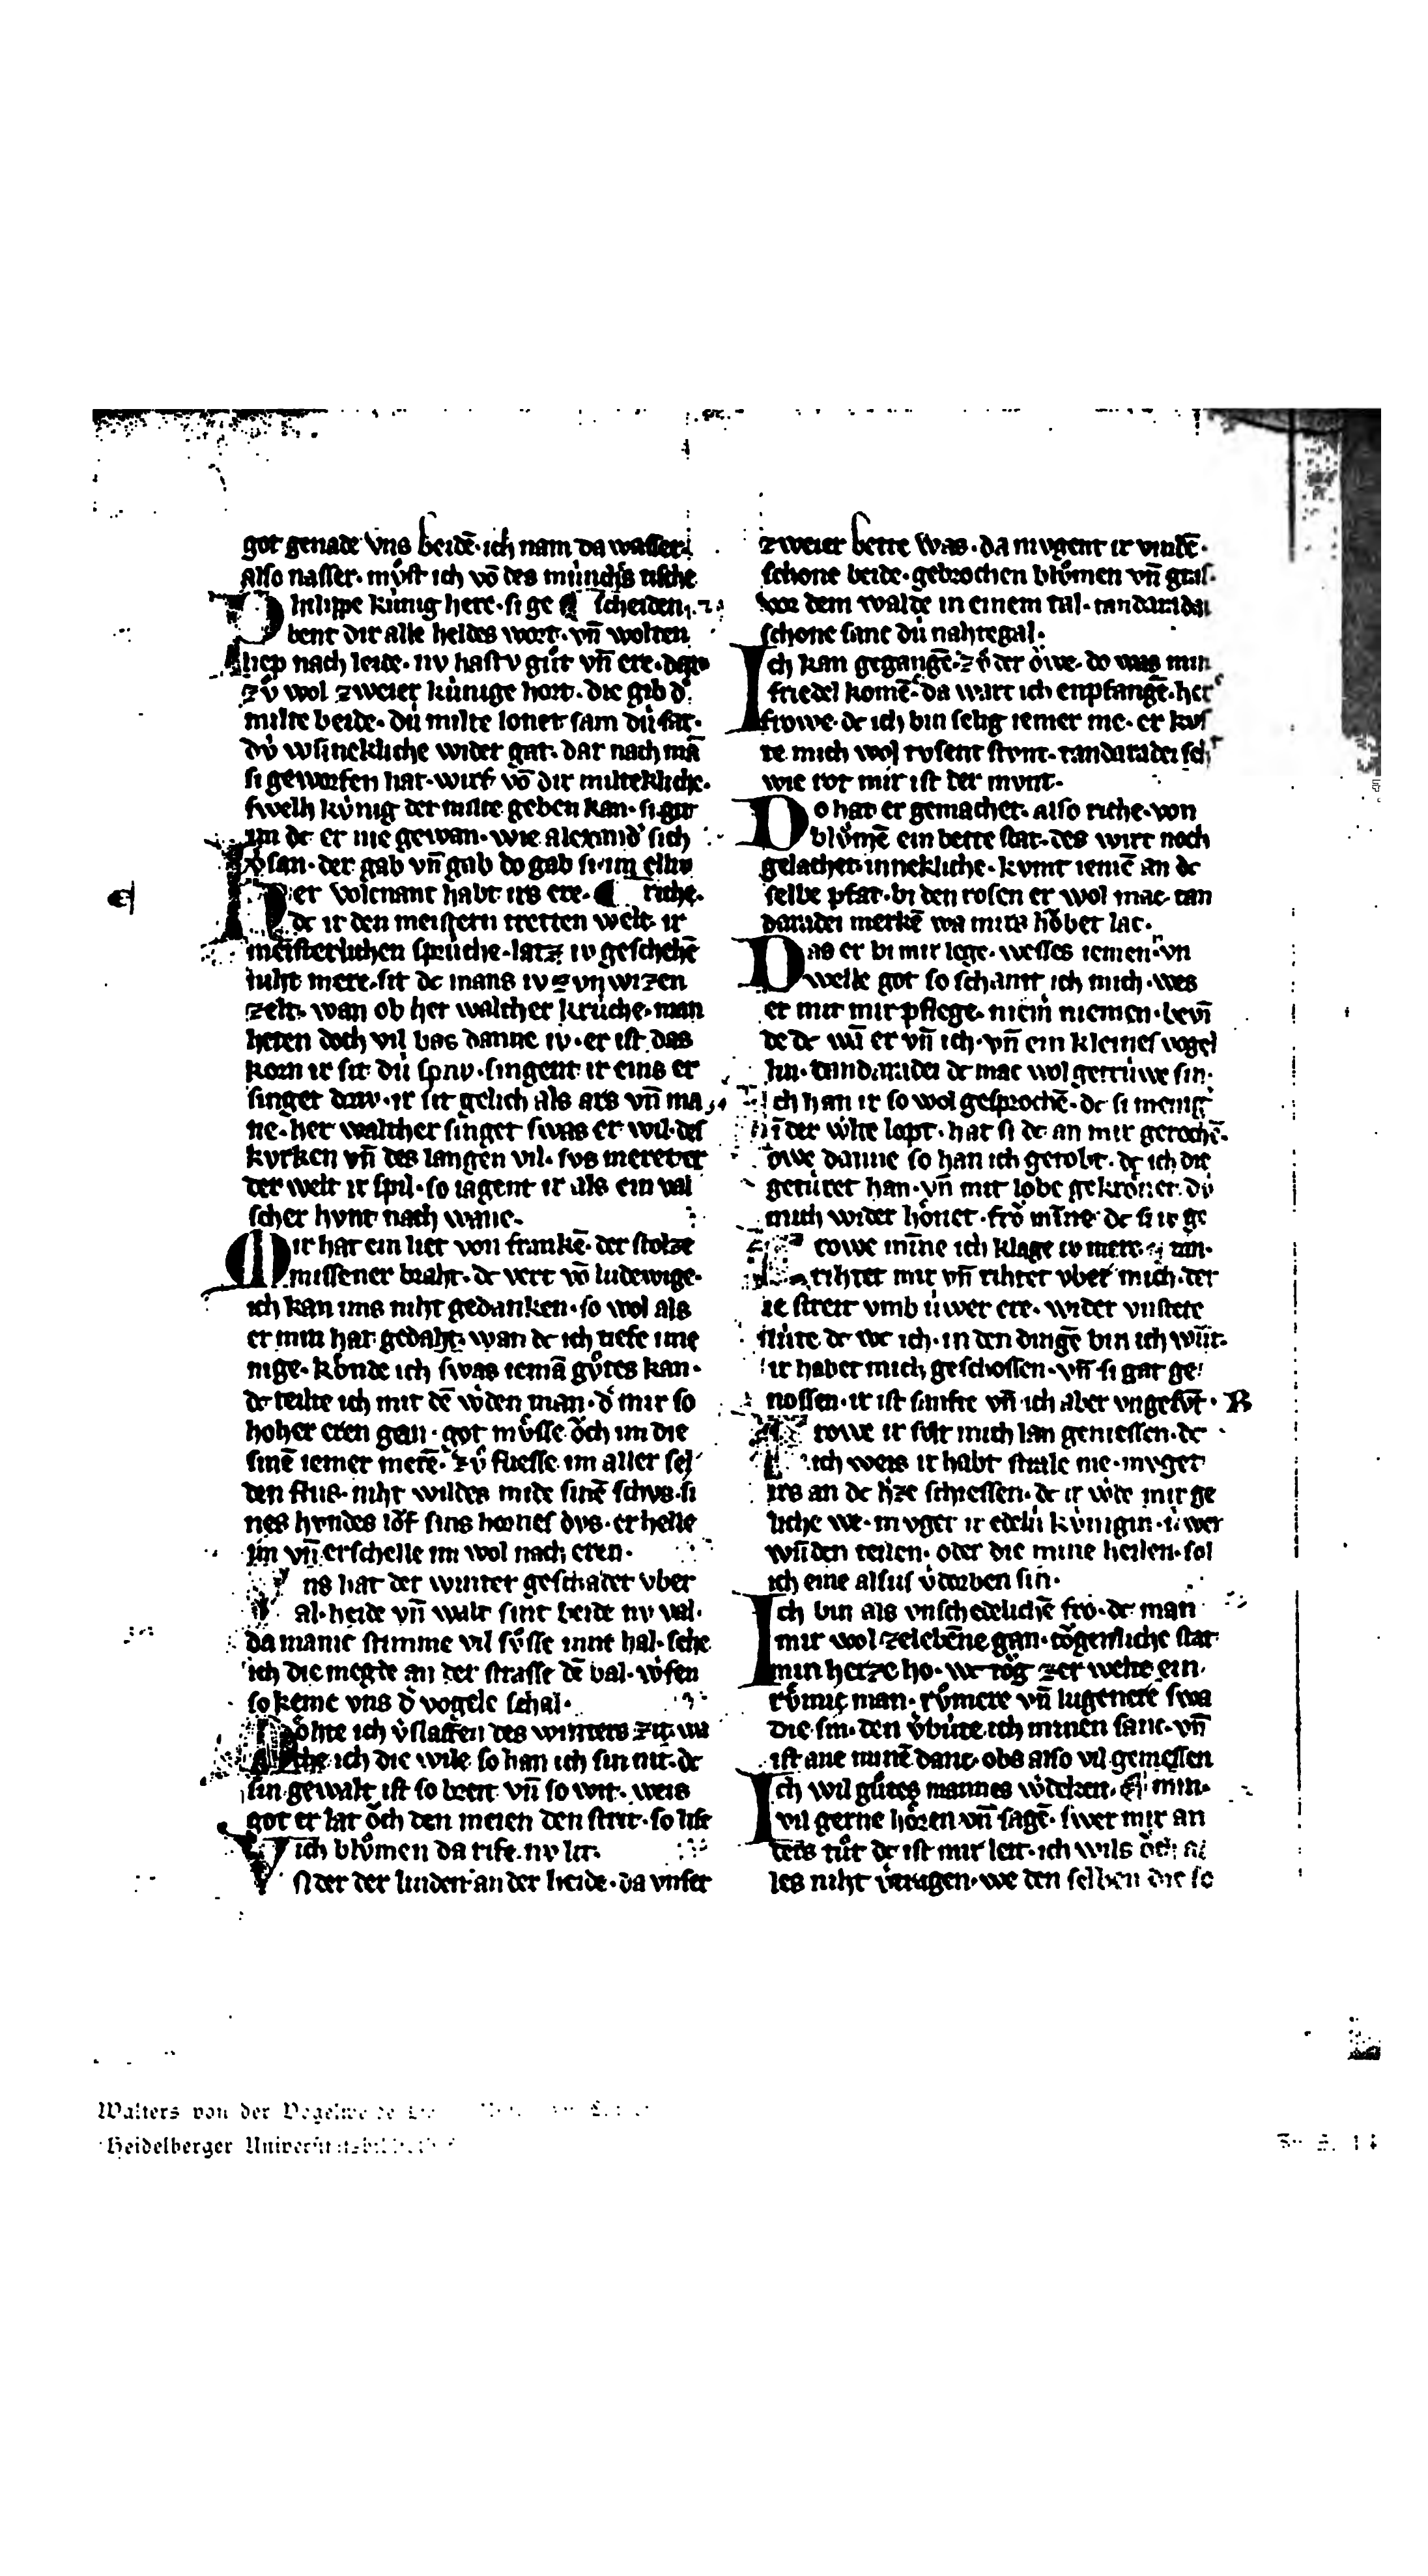 got genade vns beidē · ich nam da wasser ·
also nasser · mv̊st ich vō des mu̇nchs tische
Philippe ku̇nig here · si ge scheiden ·
bent dir alle heldes wort · vn̄ wolten
liep nach leide · nv hastv gu̇t vn̄ ere · der
zv̊ wol zweier ku̇nige hort · die gib d'
milte beide · du̇ milte lonet sam du̇ sat ·
du̇ wsinekliche wider gat · dar nach mā
si geworfen hat · wirf vō dir miltekliche ·
swelh ku̇nig der milte geben kan · si git
im dc er nie gewan · wie alexand' sich
v'san · der gab vn̄ gab do gab si im ellu̇
riche ·
Her volcnant habt irs ere ·
dc ir den meistern tretten welt · ir
meisterlichen spru̇che · latz iv geschehē
niht mere · sit dc mans iv zvn wizen
zelt · wan ob her walther kru̇che · man
heten doch vil bas danne iv · er ist das
korn ir sit du̇ sprv · singent ir eins er
singet drıv · ir sit gelich als ars vn̄ ma
ne · her walther singet swas er wil · des
kvrken vn̄ des langen vil · svs meret er
der welt ir spil · so iagent ir als ein val
scher hvnt nach wane ·
Mir hat ein liet von frankē · der stolze
missener braht · dc vert vō ludewige ·
ich kan ims niht gedanken · so wol als
er min hat gedaht · wan dc ich tiefe ime
nige · kȯnde ich swas iemā gv̊tes kan ·
dc teilte ich mit dē w'den man · d' mir so
hoher eren gan · got mv̊sse ȯch im die
sinē iemer merē · zv̊ fliesse im aller sel
den flus · niht wildes mide sinē schvs · si
nes hvndes lȯf sins hornes dvs · erhelle
im vn̄ erschelle im wol nach eren ·
Vns hat der winter geschadet vber
al · heide vn̄ walt sint beide nv val ·
da manic stimme vil sv̊sse inne hal · sehe
ich die megde an der strasse dē bal · w'fen
so keme vns d' vogele schal ·
Mȯhte ich v'slaffen des winters zit · wa
che ich die wile so han ich sin nit · dc
sin gewalt ist so breit vn̄ so wit · weis
got er lat ȯch den meien den strit · so lise
ich blv̊men da rife nv lit ·
Vnder der linden an der heide · da vnser
zweier bette was · da mvgent ir vindē ·
schone beide · gebrochen blv̊men vn̄ gras ·
vor dem walde in einem tal · tandaradai
schone sanc du̇ nahtegal ·
Ich kan gegangē · zv̊ der ȯwe · do was min
friedel komē · da wart ich enpfangē · her
frowe · dc ich bin selig iemer me · er kvs
te mich wol tvsent stvnt · tandaradei sch
wie rot mir ist der mvnt ·
Do hat er gemachet · also riche · von
blv̊mē ein bette stat · des wirt noch
gelachet innekliche · kvmt iemē an dc
selbe pfat · bi den rosen er wol mac · tan
daradei merkē wa mirs hȯbet lac ·
Das er bi mir lege · wesses iemen · vn
welle got so schamt ich mich · wes
er mit mir pflege · niem niemen · bevin
de dc wā er vn̄ ich · vn̄ ein kleines vogel
lin · tandaradei dc mac wol getru̇we sin ·
Ich han ir so wol gesprochē · dc si menig
ī der w'lte lopt · hat si dc an mir gerochē ·
owe danne so han ich getobt · dc ich die
getu̇ret han · vn̄ mit lobe gekrȯnet · du̇
mich wider hȯnet · frȯ mīne dc si iv ge
tan ·
Frowe mīne ich klage iv mere ·
rihtet mir vn̄ rihtet vber mich · der
ie streit vmb u̇wer ere · wider vnstete
lu̇te dc wc ich · in den dingē bin ich wūt ·
ir habet mich geschossen · vn̄ si gat ge
nossen · ir ist sanfte vn̄ ich aber vngesv̄t · R
Frowe ir sv̊lt mich lan geniessen · dc
ich weis ir habt strale me · mvget
irs an dc h'ze schiessen · dc ir w'de mir ge
liche we · mvget ir edelu̇ ku̇nigin · u̇wer
wūden teilen · oder die mine heilen · sol
ich eine alsus v'dorben sin ·
Ich bin als vnschedelichē fro · dc man
mir wol zelebēne gan · tȯgenliche stat
min herze ho · wc tȯg zer welte ein
rv̊mic man · rv̊mere vn̄ lugenere swa
die sin · den v'bu̇te ich minen sanc · vn̄
ist ane minē danc · obs also vil geniessen
min ·
Ich wil gu̇tes mannes w'dekeit ·
vil gerne hȯren vn̄ sagē · swer mir an
ders tu̇t dc ist mir leit · ich wils ȯch al
les niht v'tragen · we den selben die so
Walters von der
Heidelberger